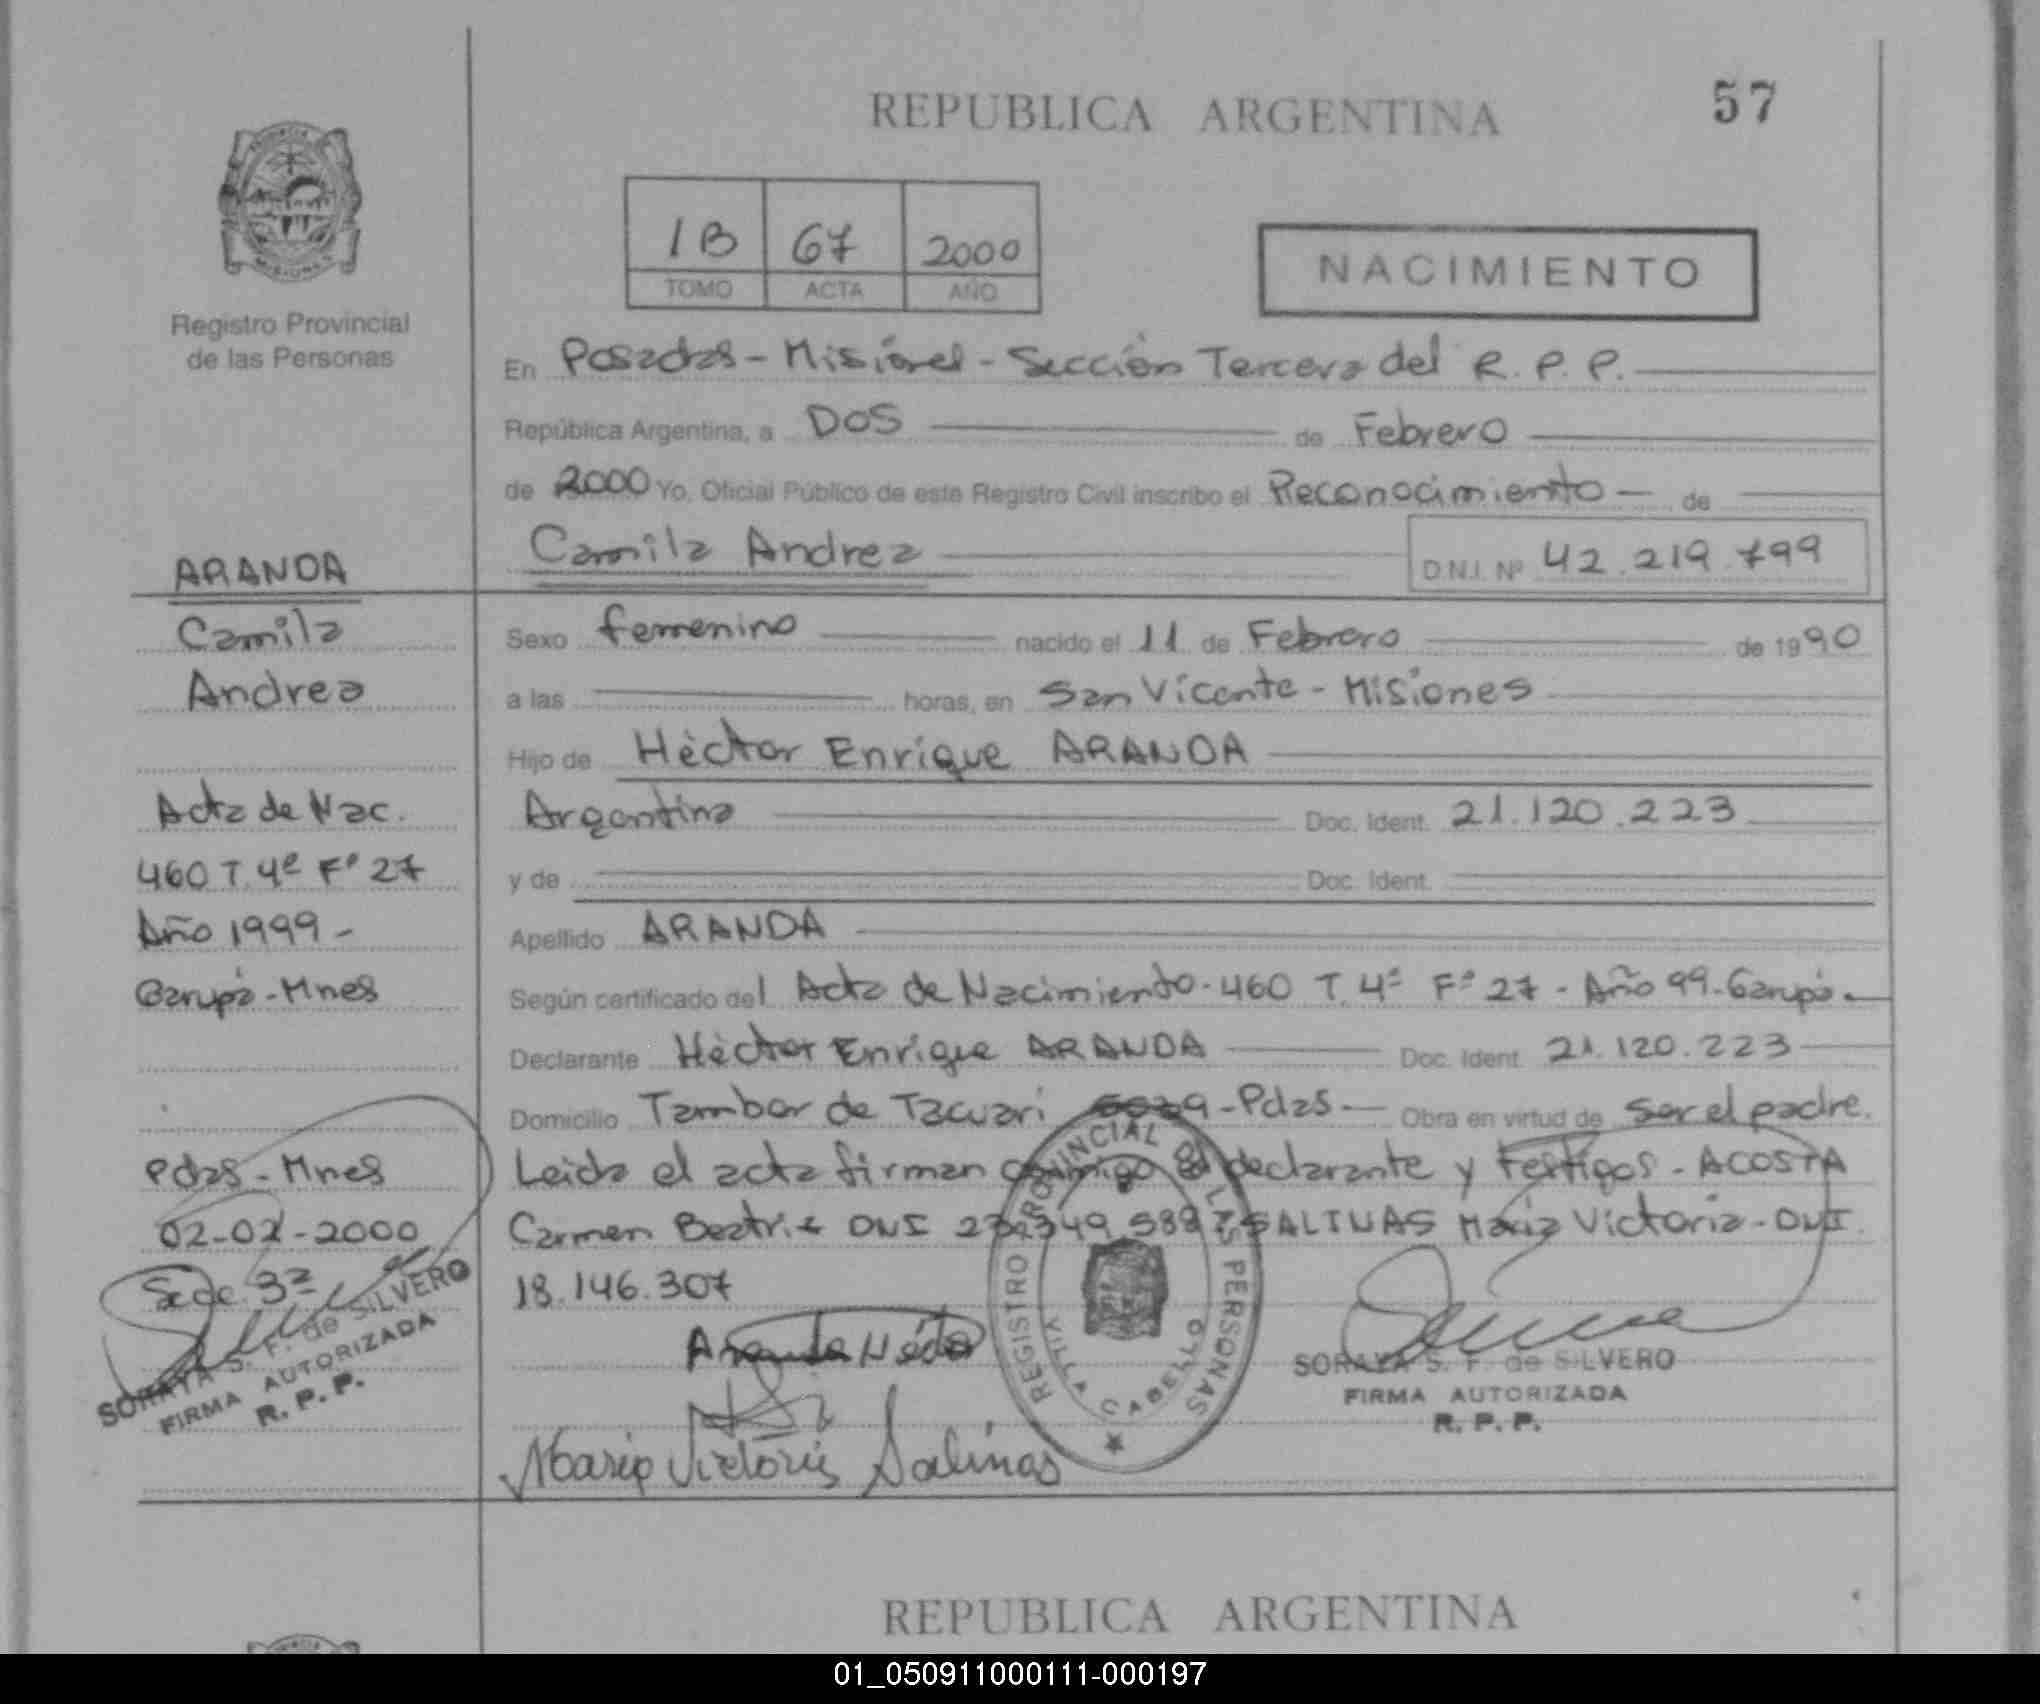 REPUBLICA ARGENTINA
57
1B 67 2000
TOMO ACTA AÑO
NACIMIENTO
Registro Provincial
de las Personas
En Posadas - Misiones - Sección Tercera del R. P. P.
República Argentina, a DOS de Febrero
de 2000 Yo, Oficial Público de este Registro Civil inscribo el Reconocimiento - de
Camila Andrea
D.N.I. Nº 42.219.799
ARANDA
Camila
Andrea
Acta de Nac.
460 T. 4º Fº 27
Año 1999 -
Garupá - Mnes
Pdas - Mnes
02-02-2000
Secc. 3ª
SORAYA S. F. de SILVERO
FIRMA AUTORIZADA
R. P. P.
Sexo femenino nacido el 11 de Febrero de 1990
a las horas, en San Vicente - Misiones
Hijo de Héctor Enrique ARANDA
Argentino Doc. Ident. 21.120.223
y de Doc. Ident.
Apellido ARANDA
Según certificado del Acta de Nacimiento - 460 T. 4º Fº 27 - Año 99 - Garupá -
Declarante Héctor Enrique ARANDA Doc. Ident. 21.120.223
Domicilio Tambor de Tacuarí - Pdas - Obra en virtud de ser el padre.
Leida el acta firman conmigo el declarante y Testigos - ACOSTA
Carmen Beatriz DNI SALINAS María Victoria - DNI.
18.146.307
Aranda Héctor
María Victoria Salinas
REGISTRO PROVINCIAL DE LAS PERSONAS
VILLA CABELLO
SORAYA S. F. de SILVERO
FIRMA AUTORIZADA
R. P. P.
REPUBLICA ARGENTINA
01_050911000111-000197